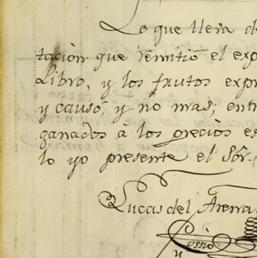 Lo que lleva de
tación que remitió el exp
Libro, y los frutos expr
y causó, y no mas; entr
ganados à los precios es
lo yo presente el Sôr.
Lucas del Arena
Cossio
y